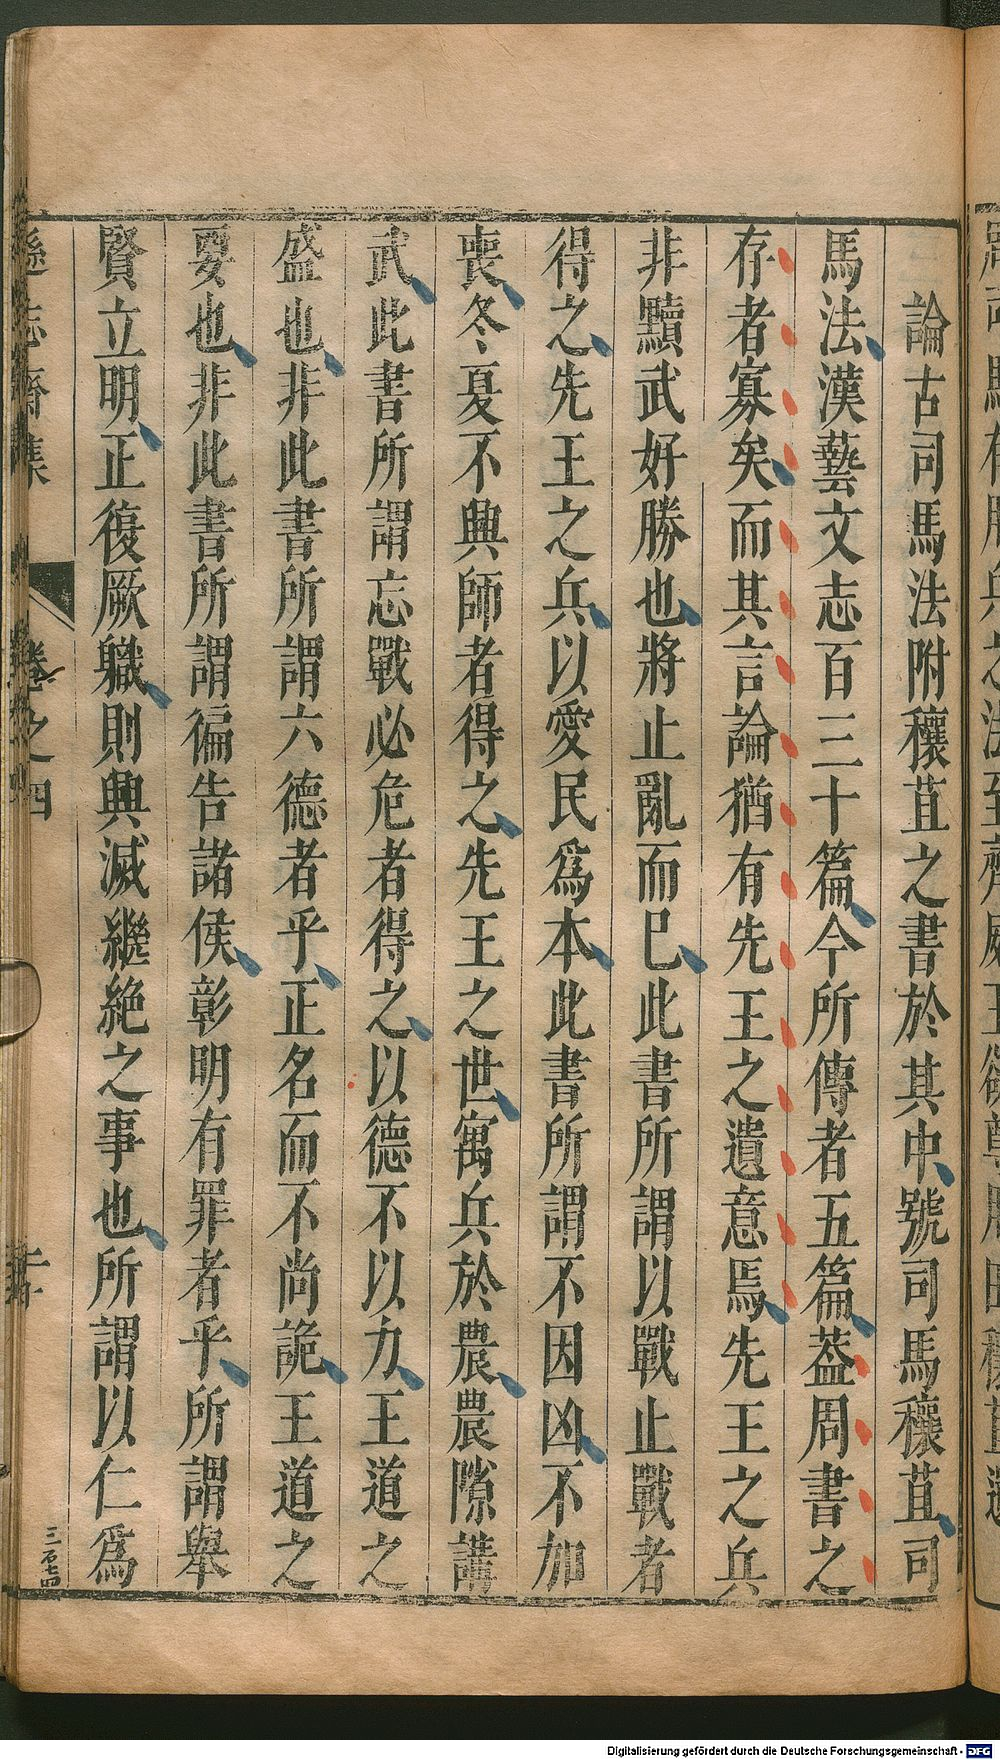 論古司馬法附穰苴之書於其中號司馬穰苴司
馬法漢藝文志百三十篇今所傳者五篇葢周書之
存者寡矣而其言論猶有先王之遺意焉先王之兵
非黷武好勝也將止亂而已此書所謂以戰止戰者
得之先王之兵以愛民爲本此書所謂不因凶不加
喪冬夏不興師者得之先王之世寓兵於農農隙講
武此書所謂忘戰必危者得之以德不以力王道之
盛也非此書所謂六德者乎正名而不尚詭王道之
要也非此書所謂徧告諸侯彰明有罪者乎所謂舉
賢立明正復厥職則興滅繼絕之事也所謂以仁爲
遜志齋集
卷之四
三百七四
Digitalisierung gefördert durch die Deutsche Forschungsgemeinschaft - DFG